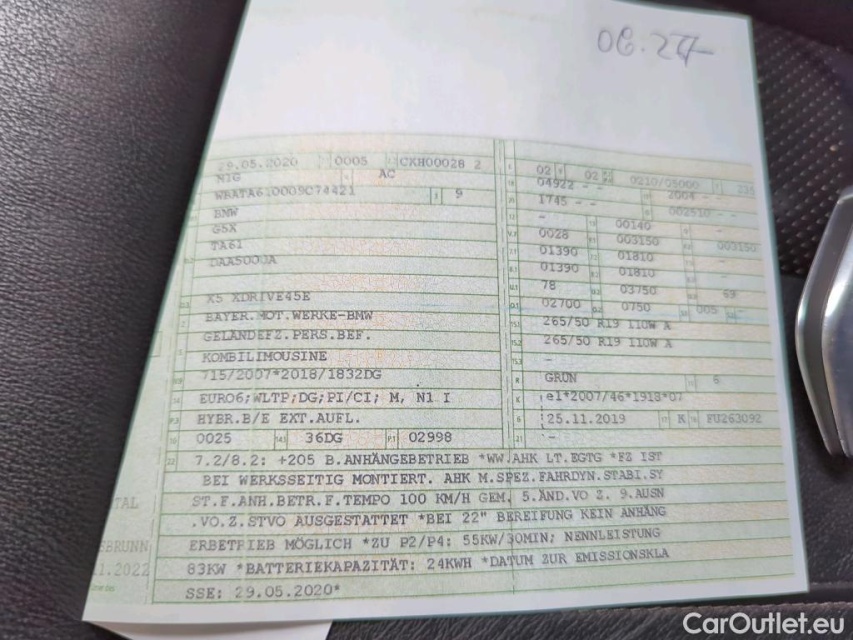 06.27
29.05.2020 0005 CKH00028 2 02 02 0210/05000 235
M1G AC 04922 - - 2004 - -
WBATA610009C74421 9 1745 - - 002510 - -
BMW - 00140 -
G5X 0028 003150 003150
TA61 01390 01810
DAA5000A 01390 01810
78 03750 69
X5 XDRIVE45E 02700 0750 005
BAYER.MOT.WERKE-BMW 265/50 R19 110W A
GELÄNDEFZ.PERS.BEF. 265/50 R19 110W A
KOMBILIMOUSINE -
715/2007*2018/1832DG GRÜN 6
EURO6;WLTP;DG;PI/CI; M, N1 I e1*2007/46*1918*07
HYBR.B/E EXT.AUFL. 25.11.2019 K FU263092
0025 36DG 02998 -
7.2/8.2: +205 B.ANHÄNGEBETRIEB *WW.AHK LT.EGTG *FZ IST
BEI WERKSSEITIG MONTIERT. AHK M.SPEZ.FAHRDYN.STABI.SY
ST.F.ANH.BETR.F.TEMPO 100 KM/H GEM. 5.ÄND.VO Z. 9.AUSN
.VO.Z.STVO AUSGESTATTET *BEI 22" BEREIFUNG KEIN ANHÄNG
ERBETRIEB MÖGLICH *ZU P2/P4: 55KW/30MIN; NENNLEISTUNG
83KW *BATTERIEKAPAZITÄT: 24KWH *DATUM ZUR EMISSIONSKLA
SSE: 29.05.2020*
TAL
SBRUNN
1.2022
CarOutlet.eu